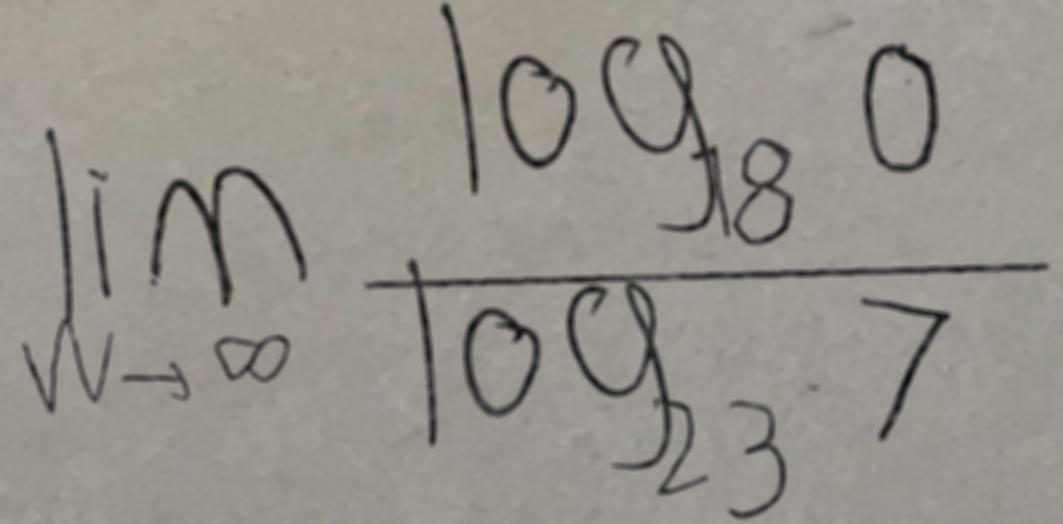 \lim_{w \to \infty} \frac{\log_{18} 0}{\log_{23} 7}